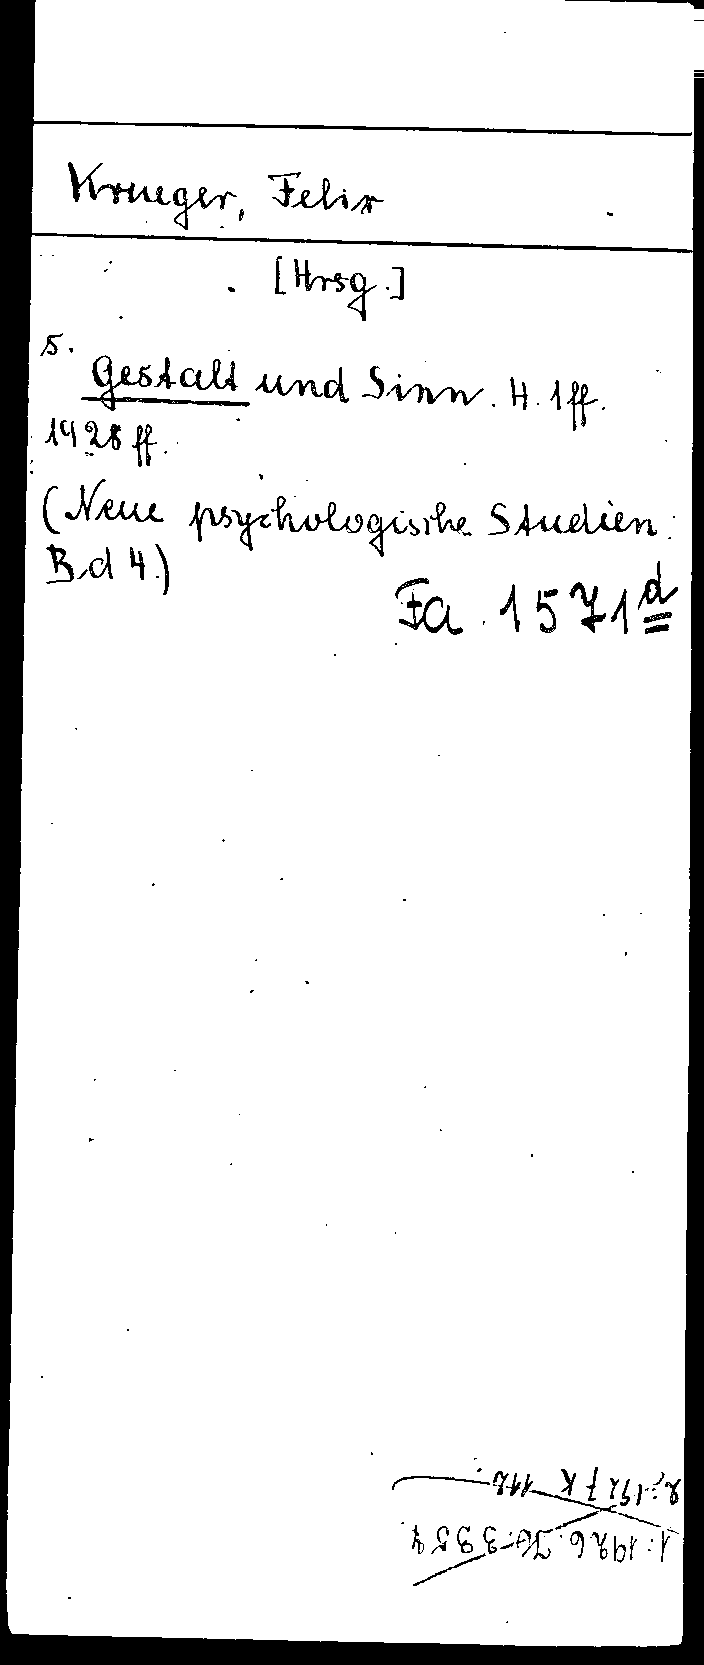 Krueger, Felix
[Hrsg.]
5.
Gestalt und Sinn. H. 1 ff.
1928 ff.
(Neue psychologische Studien.
Bd 4.)
Fa 1571 d
1: 1926
2: 1927 K 112